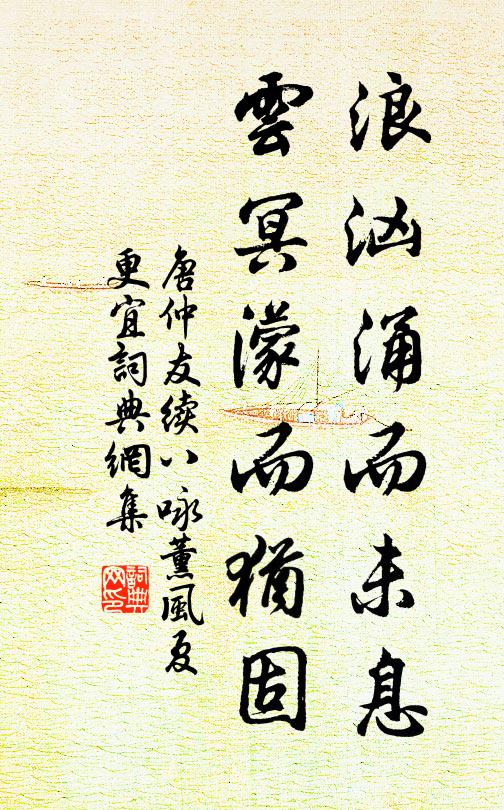 浪汹涌而未息
雲冥濛而猶固
唐仲友續八咏薰風夏
更宜詞典網集
詞典网印